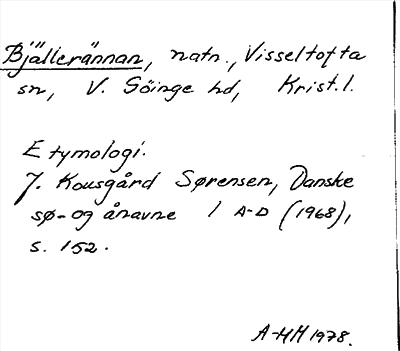 Bjällerännan, natn., Visseltofta
sn, V. Göinge hd, Krist. l.
Etymologi.
J. Kousgård Sørensen, Danske
sø- og ånavne 1 A-D (1968),
s. 152.
A-HH 1978.